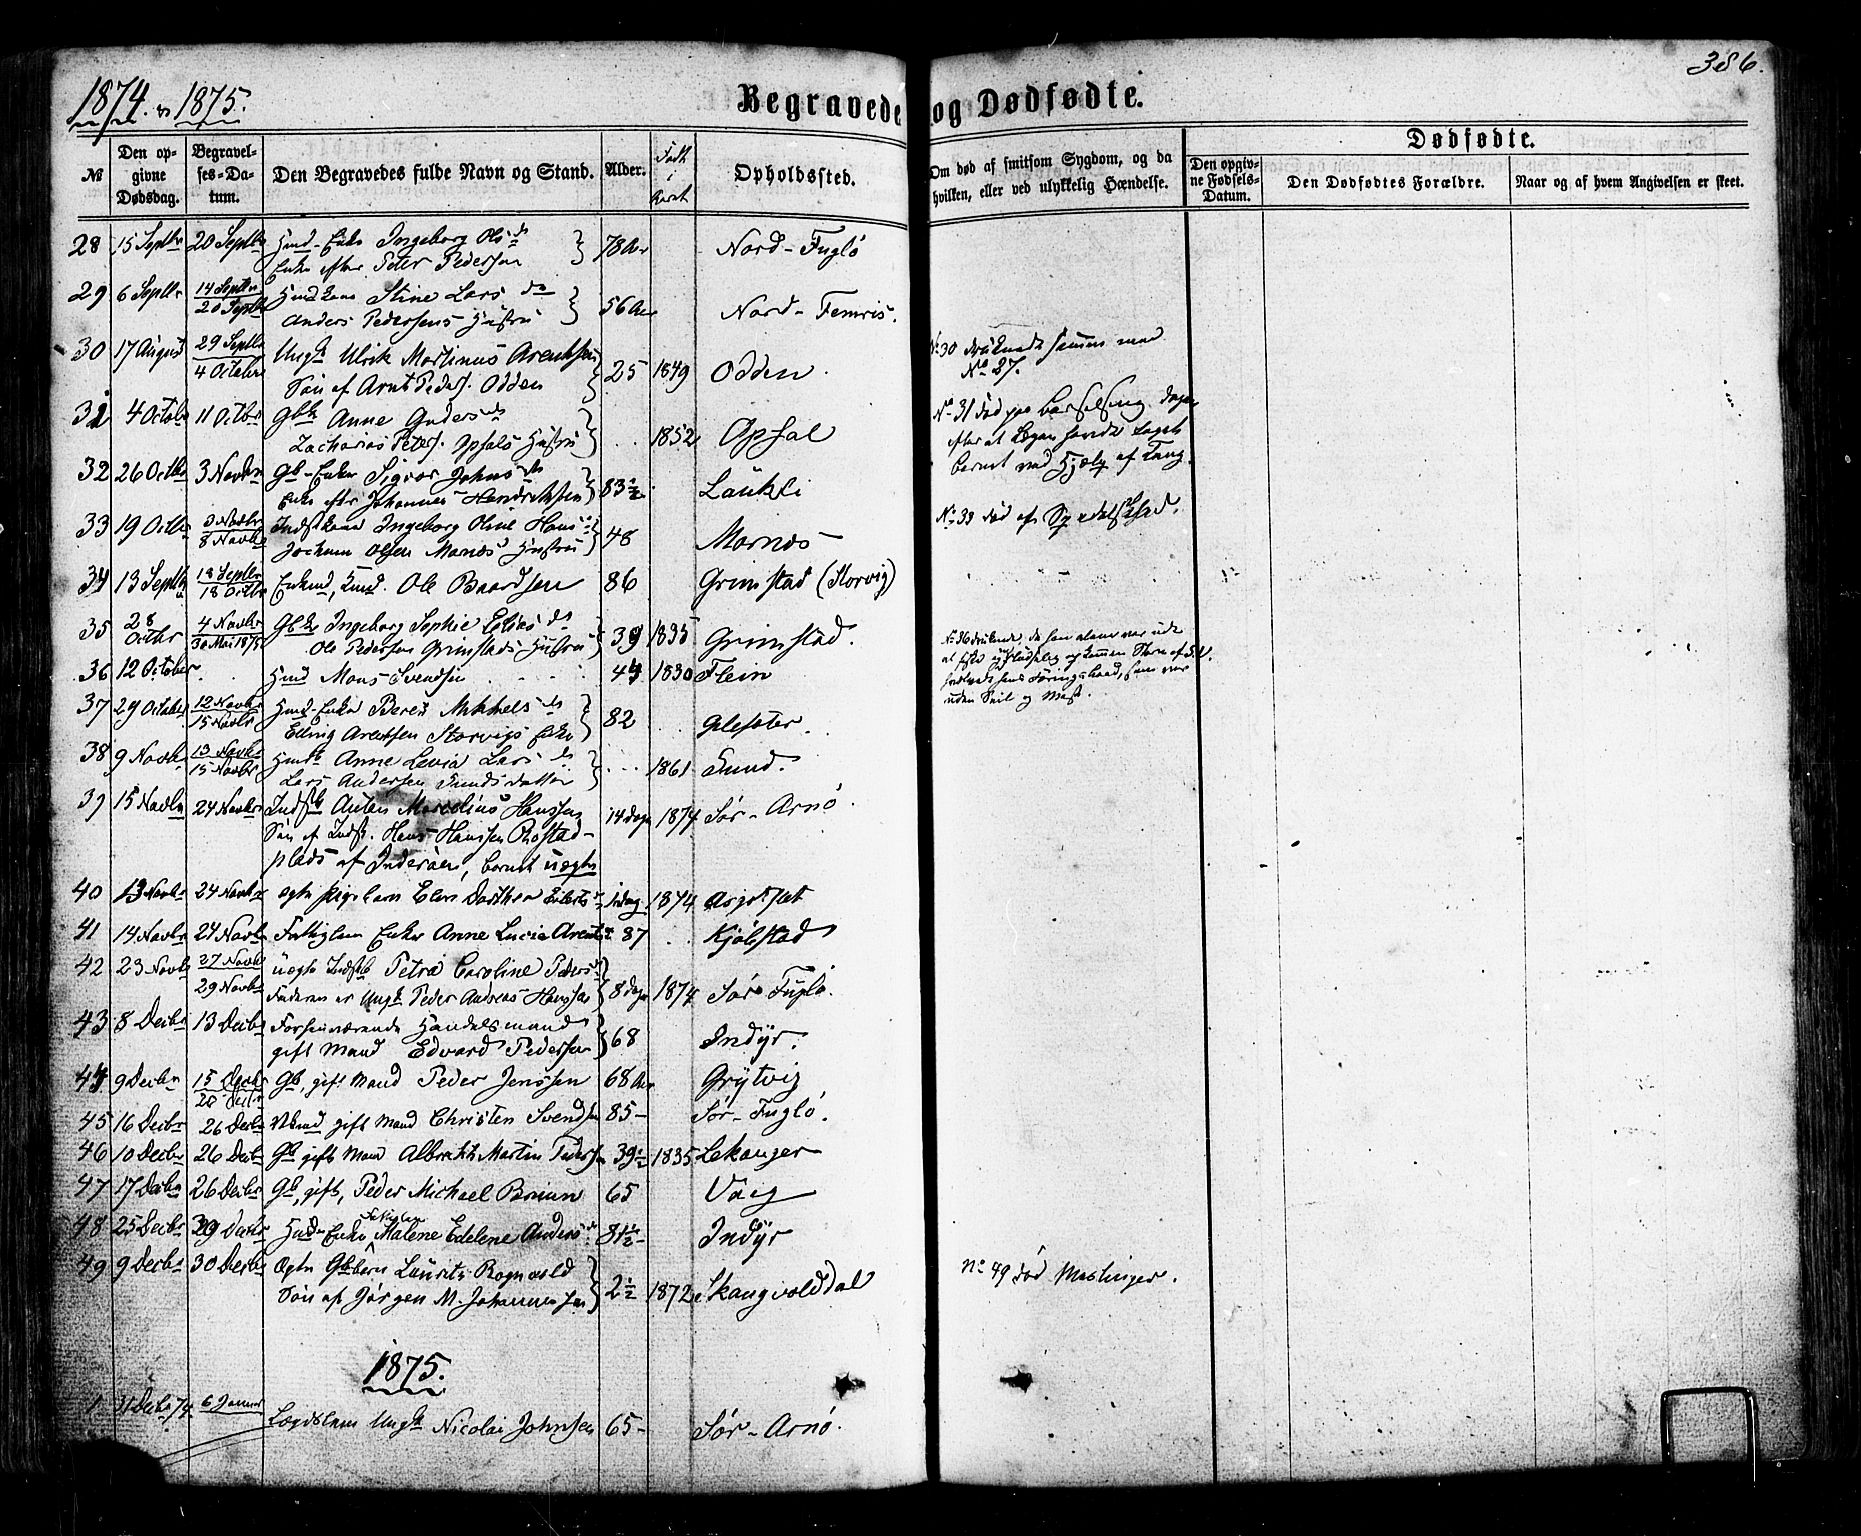 386.
1874. & 1875.
Begravede og Dødfødte.
№ Den opgivne Dødsdag. Begravelses-Datum. Den Begravedes fulde Navn og Stand. Alder. Født i Aaret Opholdssted. Om død af smitsom Sygdom, og da hvilken, eller ved ulykkelig Hændelse. Dødfødte. Den opgivne Fødsels-Datum. Den Dødfødtes Forældre. Naar og af hvem Angivelsen er skeet.
28 15 Septbr 20 Septbr Hmd-Enke Ingeborg Olsd 78 Aar Nord-Fuglø
Enke efter Peter Pedersen
29 6 Septbr 14 Septbr Stine Larsd 56 Aar Nord-Femris.
20 Septbr Anders Pedersens Hustru
30 17 August 29 Septbr Ungk Ulrik Martinus Arentsen 25 1849 Odden. No 30 druknede sammen med
4 Octobr Søn af Arnt Peders. Odden No 27.
31 4 Octobr 11 Octbr Gbk Anne Andersd 1852 Opsal No 31 død paa Barselseng, dagen
Zacharias Peters. Opsals Hustru efter at Lægen havde taget
barnet ved Hjælp af Tang.
32 26 Octbr 3 Novbr Gb-Enke Sigvor Johnsd 83½ Laukli
Enke eftr Johannes Hendriksen
33 19 Octbr 3 Novbr Ingeborg Oline Hansd 48 Marnæs No 33 død af Spedalskhed.
8 Novbr Jochum Olsen Marnæs Hustru
34 13 Septbr 18 Septbr Enkmd, Hmd. Ole Baardsen 86 Grimstad (Storvig)
18 Octbr
35 28 Octbr 4 Novbr Gbk Ingeborg Sophie Eliasd 39 1835 Grimstad.
30 Mai 1875 Ole Pedersen Grimstads Hustru
36 12 October Hmd Mons Svendsen 44 1830 Flein No 36 druknede, da han alene var ude
at fiske og pludselig opkommen Storm af S.V.
hans Føringsbaad, som var
uden Seil og Mast.
37 29 October 12 Novbr Hmd-Enke Beret Mikkelsd 82
15 Novbr Elling Arentsen Storvigs Enke
38 9 Novbr 13 Novbr Anne Lovia Larsd 1861 Sund.
15 Novbr Lars Andersen Sunds datter
39 15 Novbr 24 Novbr Indstb Anton Marcelius Hanssen 14 dage 1874 Sør-Arnø.
Søn af Indst. Hans Hanssen Rostad-
plads af Inderøen, barnet uægte
40 13 Novbr 24 Novbr ægte pigebarn Elen Dorthea 1 dag 1874
41 14 Novbr 24 Novbr Fattiglem Enke Anne Lucia Arentsd 87 Kjølstad
42 23 Novbr 27 Novbr uægte Indstb Petra Caroline Pedersd 8 dage 1874 Sør Fuglø.
29 Novbr Faderen er Ungk Peder Andreas Hanssen
43 8 Decbr 13 Decbr Forhenværende Handelsmand 68 Indyr.
gift Mand Edvard Pedersen
44 9 Decbr 15 Decbr Gb, gift Mand Peder Jenssen 68 Aar Grytvig
20 Decbr
45 16 Decbr 26 Decbr gift Mand Christen Svendsen 85- Sør-Fuglø.
46 10 Decbr 26 Decbr Gb gift Mand Albrekt Martin Pedersen 39½ 1835 Lekanger
47 17 Decbr 26 Decbr Gb, gift, Peder Michael Bruun 65 Vaag
48 25 Decbr 29 Decbr Enke Fattiglem Malene Edelene Andersd 81½ Indyr
49 9 Decbr 30 Decbr Ægte Gbbarn Laurits Rognvald 2½ 1872 Skaugvolddal No 49 død Mæslinger.
Søn af Jørgen M. Johannessen
1875.
1 31 Decbr 74 6 Januar Lægdslem Ungk Nicolai Johnsen 65- Sør-Arnø.